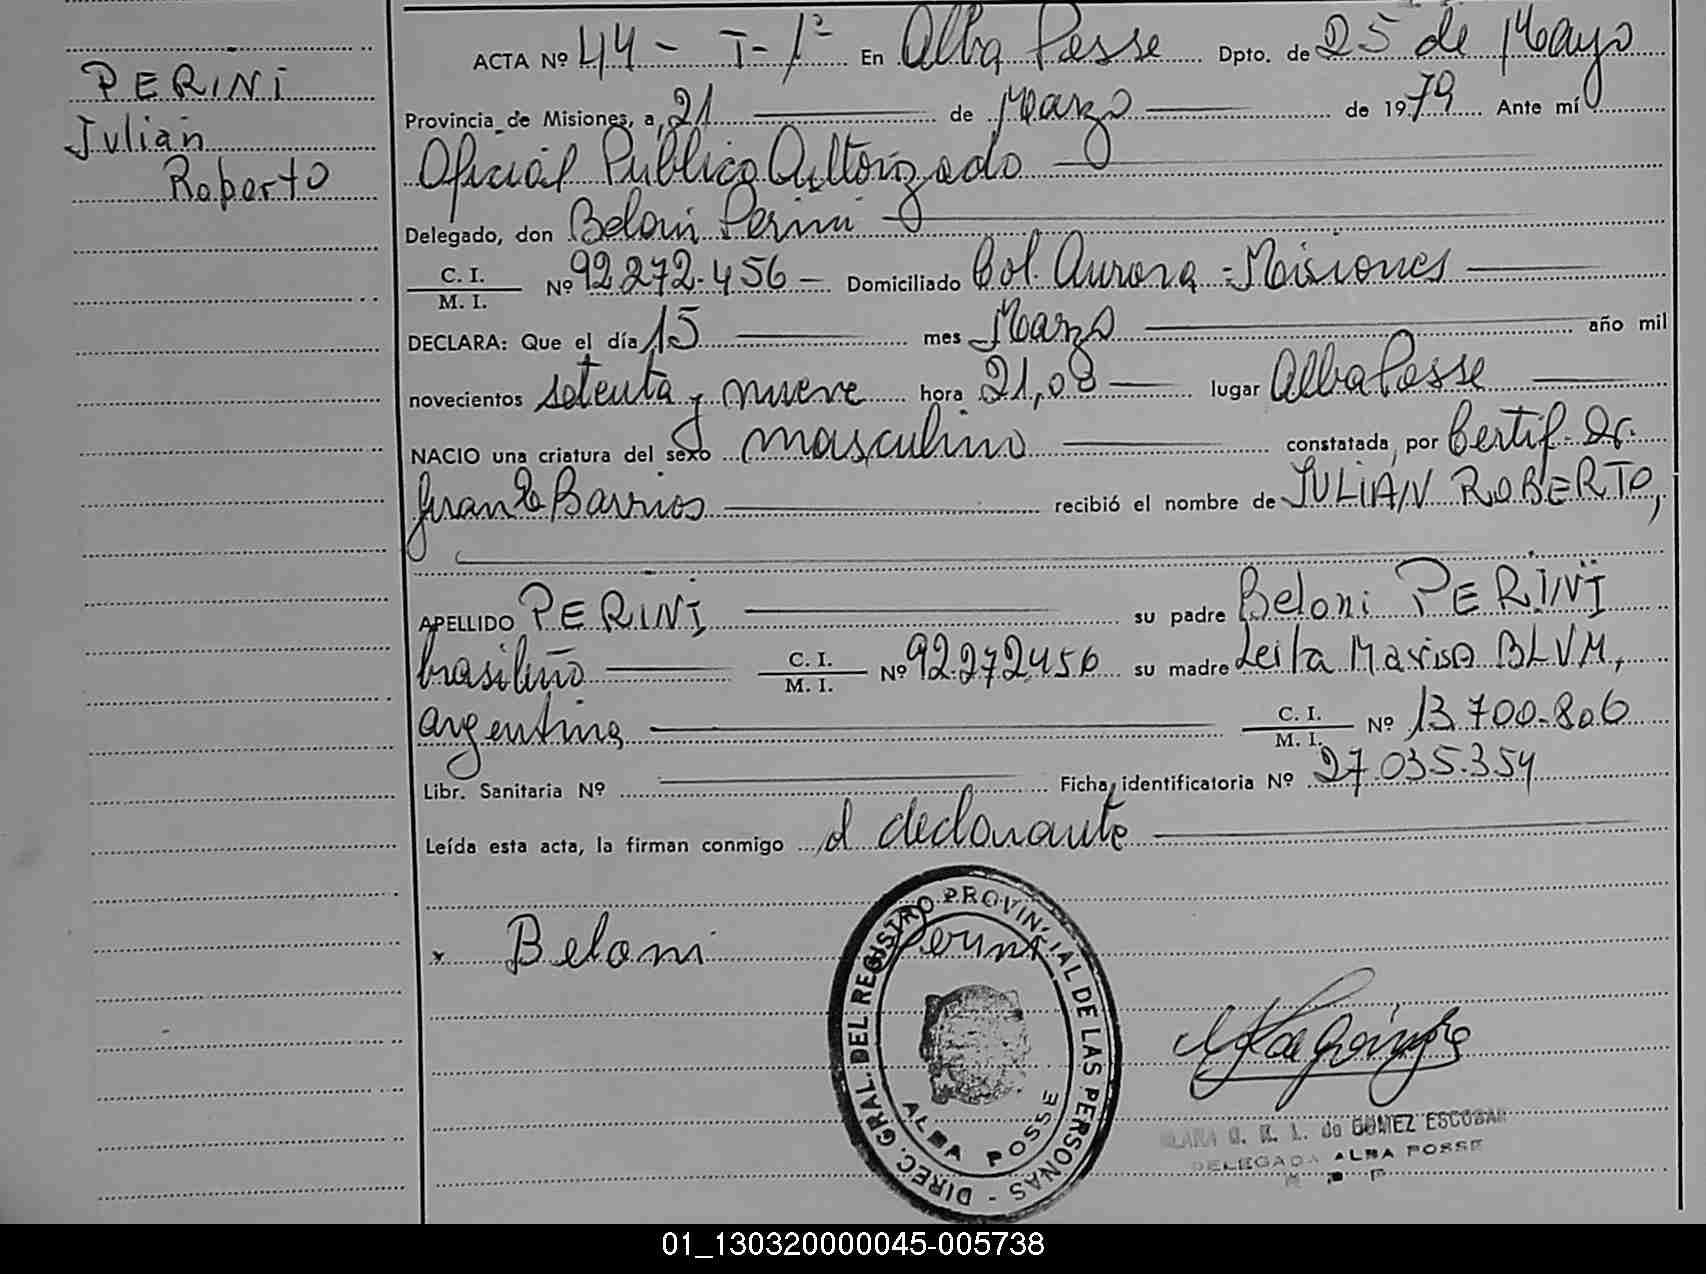 PERINI
Julián
Roberto
ACTA Nº 44 - T - 1º En Alba Posse Dpto. de 25 de Mayo
Provincia de Misiones, a 21 de Marzo de 1979 Ante mí
Oficial Público Autorizado
Delegado, don Beloni Perini
C. I. / M. I. Nº 92.272.456 - Domiciliado Col. Aurora - Misiones
DECLARA: Que el día 15 mes Marzo año mil
novecientos setenta y nueve hora 21,08 lugar Alba Posse
NACIO una criatura del sexo masculino constatada por Certif. Dr.
Juan Barrios recibió el nombre de JULIÁN ROBERTO,
APELLIDO PERINI su padre Beloni PERINI
brasileño C. I. / M. I. Nº 92.272.456 su madre Leita Marisa BLUM,
argentina C. I. / M. I. Nº 13.700.806
Libr. Sanitaria Nº Ficha identificatoria Nº 27.035.354
Leída esta acta, la firman conmigo el declarante
x Beloni Perini
DIREC. GRAL. DEL REGISTRO PROVINCIAL DE LAS PERSONAS -
ALBA POSSE
de GOMEZ ESCOBAR
DELEGADA ALBA POSSE
01_130320000045-005738